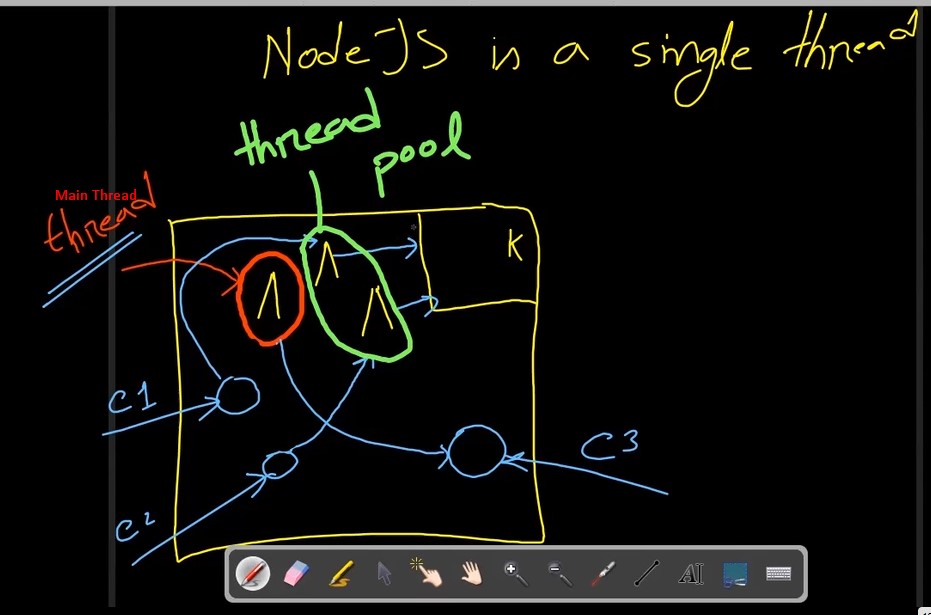 NodeJS is a single thread
thread
pool
Main Thread
thread
K
C1
C3
C2
AI